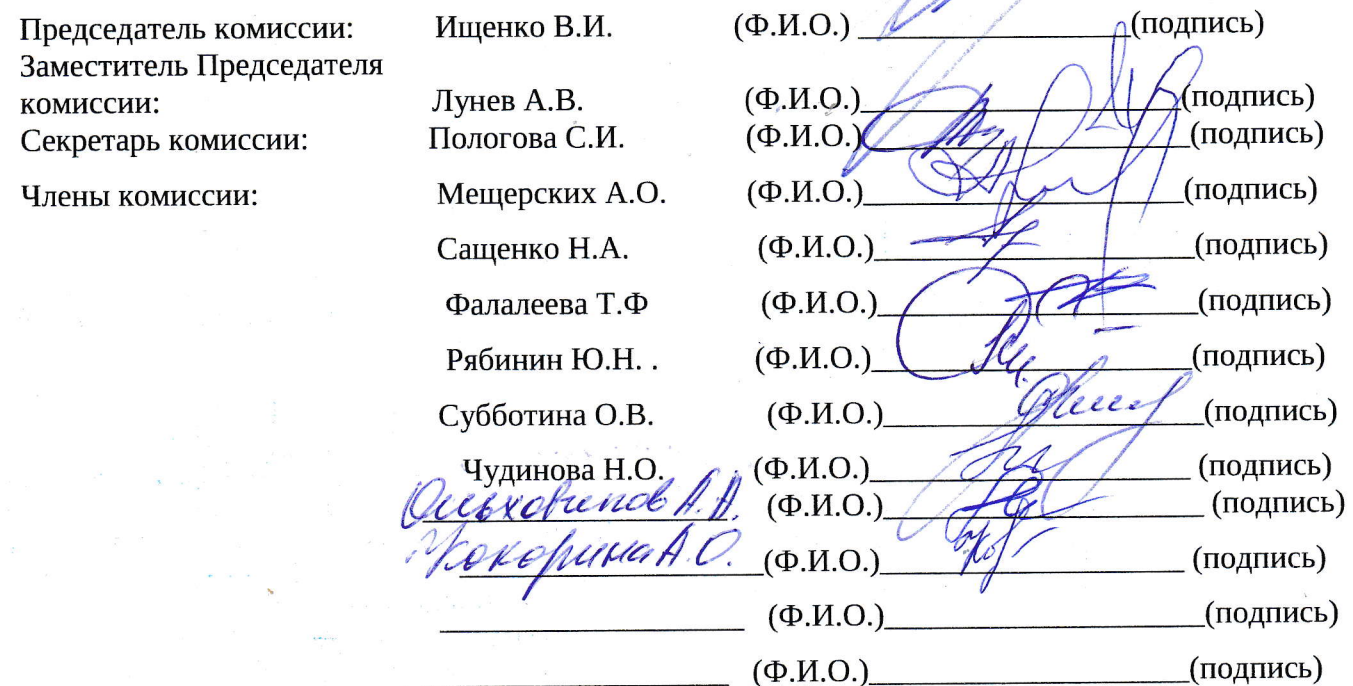 Председатель комиссии: Ищенко В.И. (Ф.И.О.) ____________________(подпись)
Заместитель Председателя
комиссии: Лунев А.В. (Ф.И.О.)____________________(подпись)
Секретарь комиссии: Пологова С.И. (Ф.И.О.)____________________(подпись)
Члены комиссии: Мещерских А.О. (Ф.И.О.)____________________(подпись)
Сащенко Н.А. (Ф.И.О.)____________________(подпись)
Фалалеева Т.Ф (Ф.И.О.)____________________(подпись)
Рябинин Ю.Н. . (Ф.И.О.)____________________(подпись)
Субботина О.В. (Ф.И.О.)____________________(подпись)
Чудинова Н.О. (Ф.И.О.)____________________(подпись)
А.А. (Ф.И.О.)____________________(подпись)
Кокорина А.О. (Ф.И.О.)____________________(подпись)
____________________ (Ф.И.О.)____________________(подпись)
____________________ (Ф.И.О.)____________________(подпись)